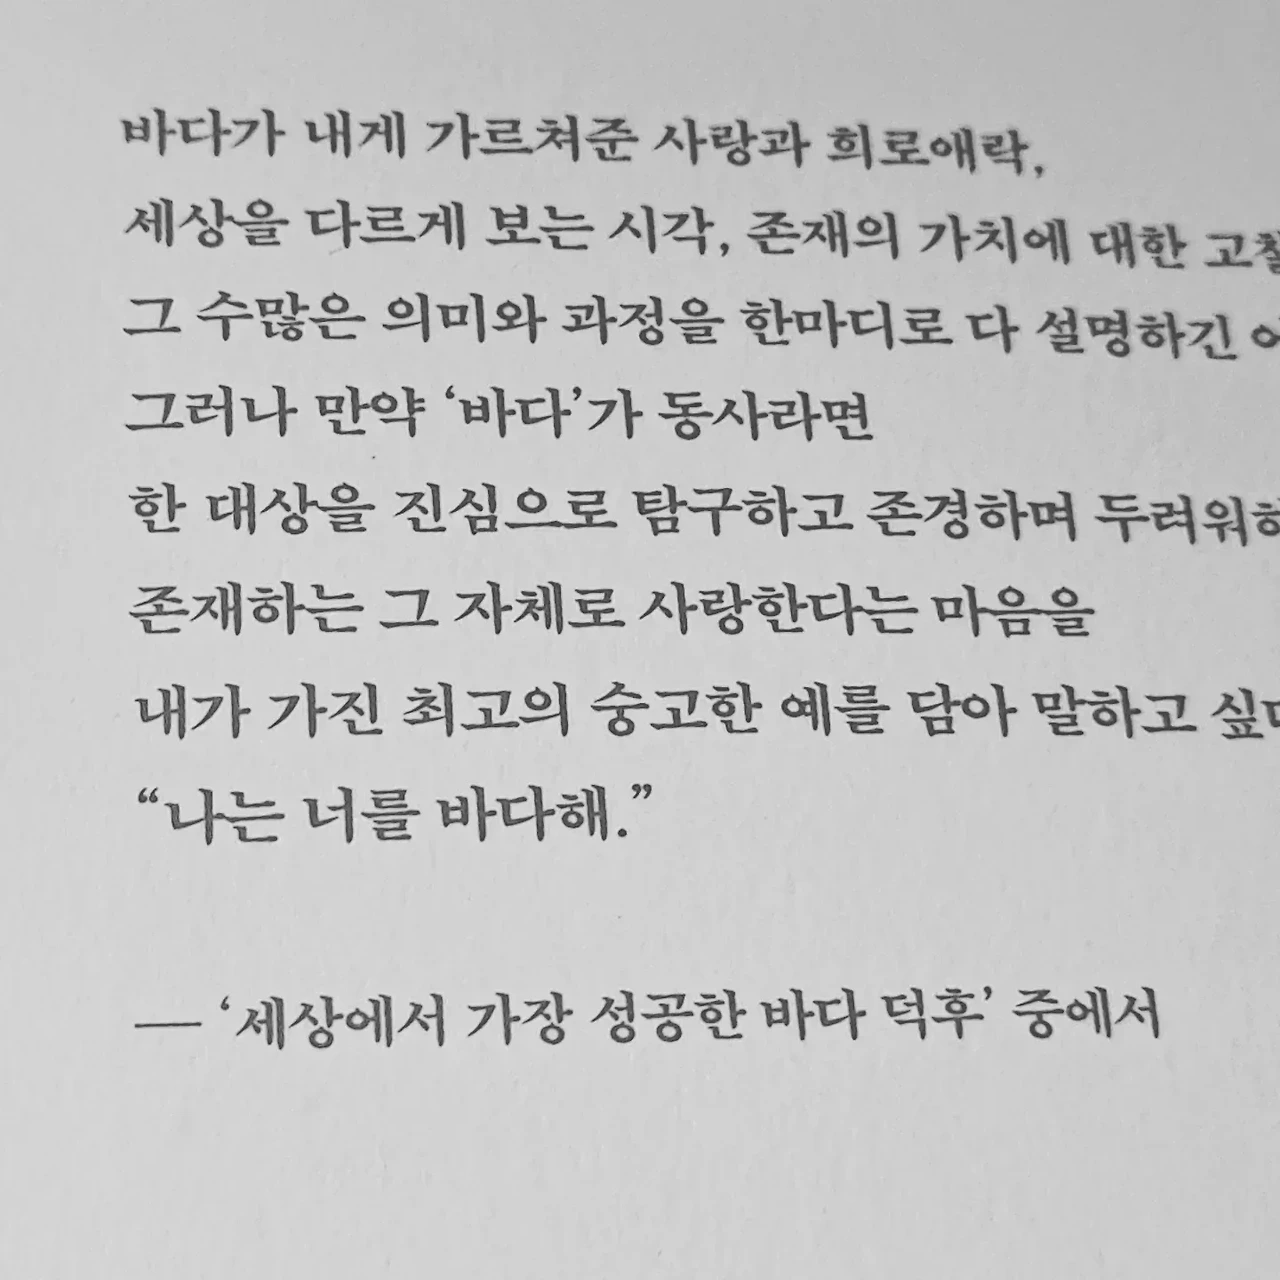 바다가 내게 가르쳐준 사랑과 희로애락,
세상을 다르게 보는 시각, 존재의 가치에 대한
그 수많은 의미와 과정을 한마디로 다 설명하긴
그러나 만약 ‘바다’가 동사라면
한 대상을 진심으로 탐구하고 존경하며
존재하는 그 자체로 사랑한다는 마음을
내가 가진 최고의 숭고한 예를 담아 말하고
“나는 너를 바다해.”
— ‘세상에서 가장 성공한 바다 덕후’ 중에서